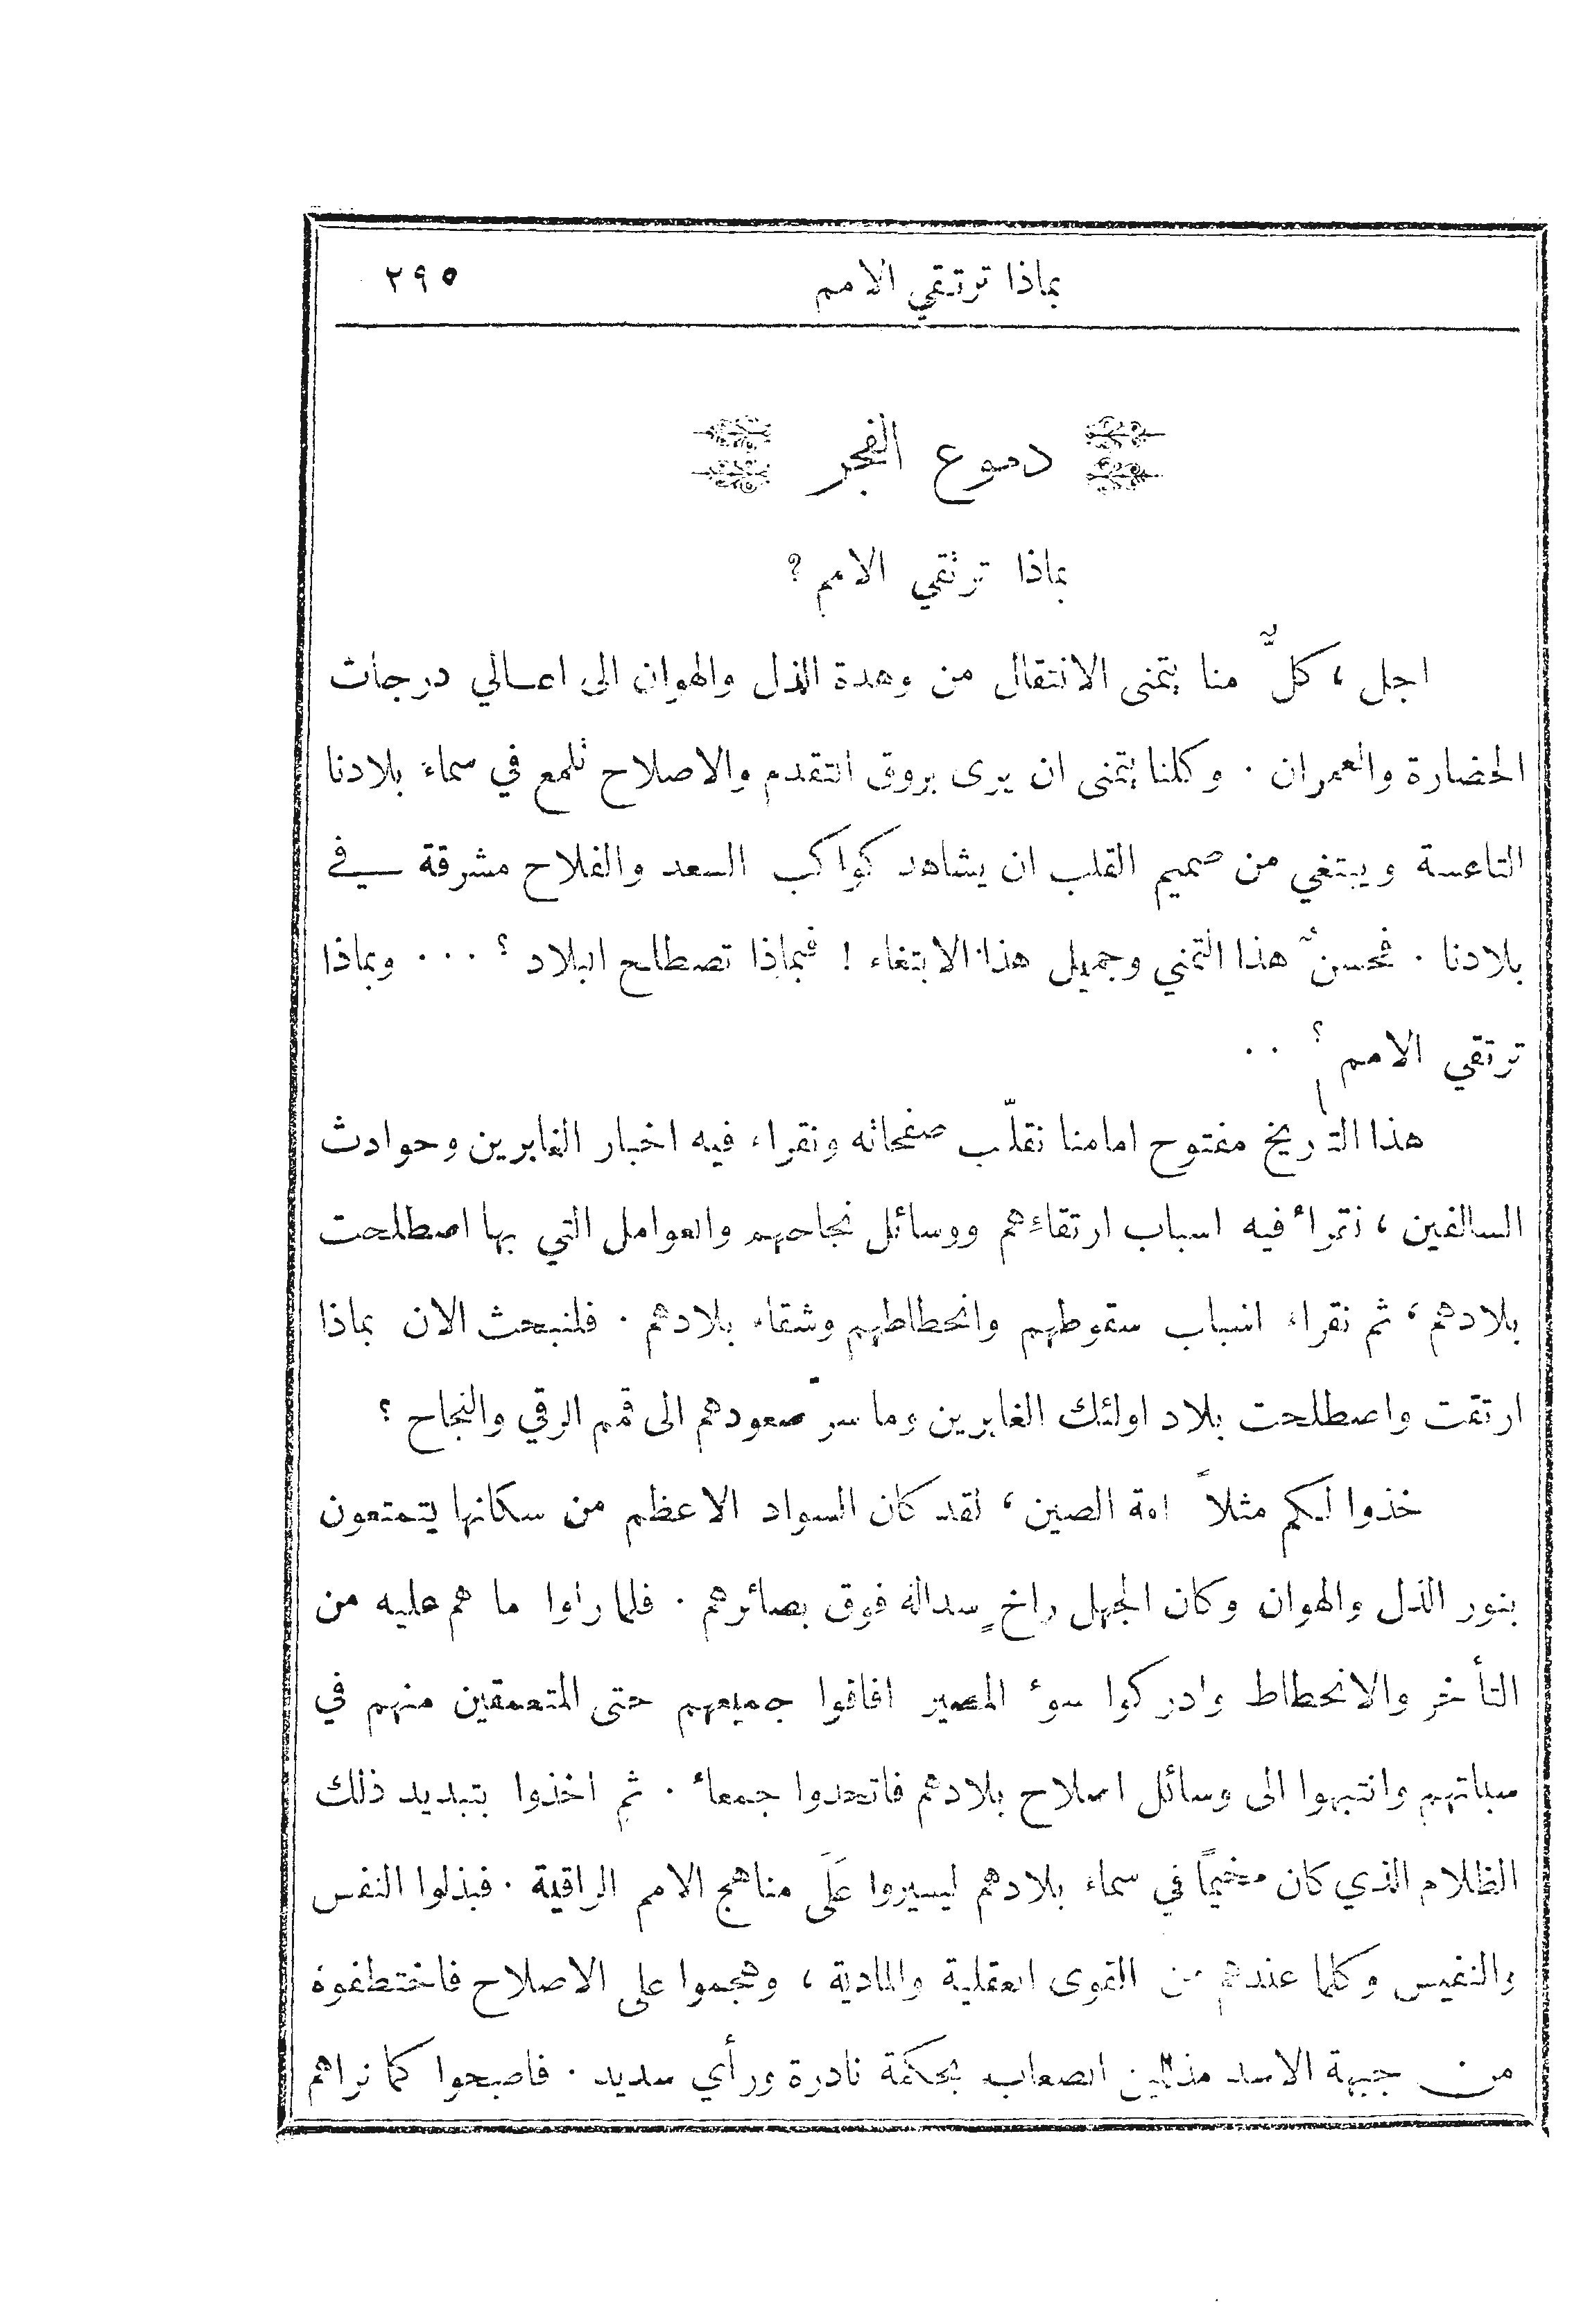 بماذا ترتقي الامم ٢٩٥
دموع الفجر
بماذا ترتقي الامم ؟
اجل ، كلٌّ منا يتمنى الانتقال من وهدة الذل والهوان الى اعالي درجات
الحضارة والعمران . وكلنا يتمنى ان يرى بروق التقدم والاصلاح تلمع في سماء بلادنا
التاعسة ويبتغي من صميم القلب ان يشاهد كواكب السعد والفلاح مشرقة في
بلادنا . فحسنٌ هذا التمني وجميل هذا الابتغاء ! فبماذا تصطلح البلاد ؟ ... وبماذا
ترتقي الامم ؟ ..
هذا التأريخ مفتوح امامنا نقلّب صفحاته ونقراء فيه اخبار الغابرين وحوادث
السالفين ، نقرأ فيه اسباب ارتقاءِهم ووسائل نجاحهم والعوامل التي بها اصطلحت
بلادهم ، ثم نقراء اسباب سقوطهم وانحطاطهم وشقاء بلادهم . فلنبحث الان بماذا
ارتقت واصطلحت بلاد اولئك الغابرين وما سرّ صعودهم الى قمم الرقي والنجاح ؟
خذوا لكم مثلاً امة الصين ، لقد كان السواد الاعظم من سكانها يتمتعون
بنور الذل والهوان وكان الجهل راخٍ سداله فوق بصائرهم . فلما راوا ما هم عليه من
التأخر والانحطاط وادركوا سوء المصير افاقوا جميعهم حتى المتعمقين منهم في
سباتهم وانتبهوا الى وسائل اصلاح بلادهم فاتحدوا جمعاء . ثم اخذوا بتبديد ذلك
الظلام الذي كان مخيماً في سماء بلادهم ليسيروا عَلَى مناهج الامم الراقية . فبذلوا النفس
والنفيس وكلما عندهم من القوى العقلية والمادية ، وهجموا على الاصلاح فاختطفوه
من جبهة الاسد مذللين الصعاب بحكمة نادرة ورأي سديد . فاصبحوا كما نراهم